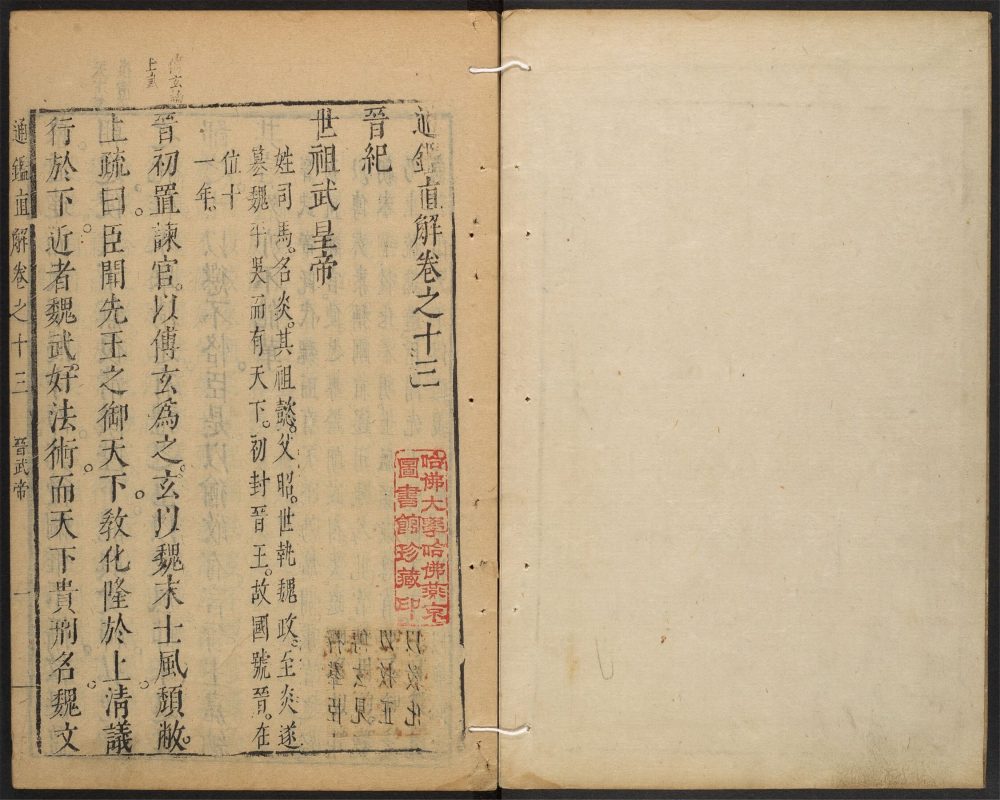 通鑑直解卷之十三
晉紀
世祖武皇帝
姓司馬。名炎。其祖懿。父昭。世執魏政。至炎遂
墓魏平吳而有天下。初封晉王。故國號晉。在
位十
一年。
晉初置諫官。以傅玄爲之。玄以魏末士風頹敝。
上疏曰。臣聞先王之御天下。敎化隆於上。清議
行於下。近者魏武好法術而天下貴刑名。魏文
通鑑直解卷之十三 晉武帝 一
哈佛大學哈佛燕京
圖書館珍藏印